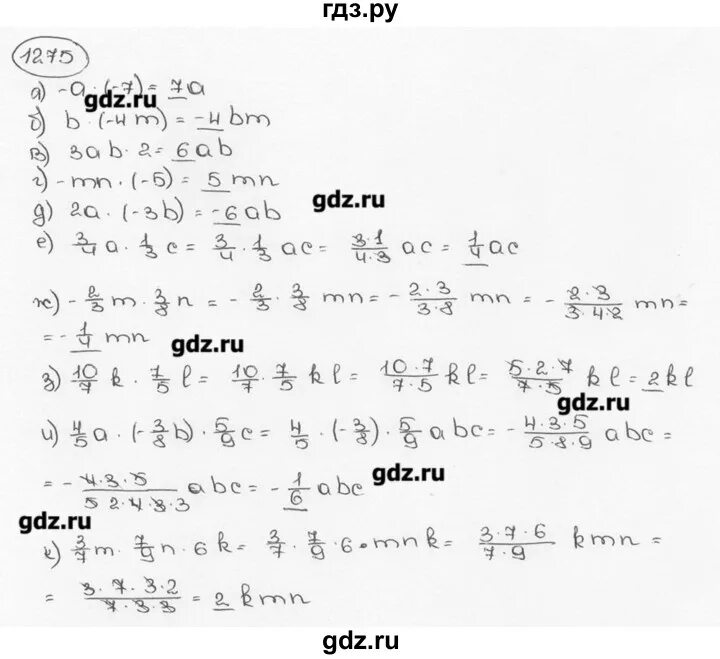 гдз.ру
1275
а) -a · (-7) = 7a
gdz.ru
б) b · (-4m) = -4bm
в) 3ab · 2 = 6ab
г) -mn · (-5) = 5mn
gdz.ru
д) 2a · (-3b) = -6ab
е) 3/4 a · 1/3 c = 3/4 · 1/3 ac = 3·1/4·3 ac = 1/4 ac
ж) - 2/3 m · 3/8 n = - 2/3 · 3/8 mn = - 2·3/3·8 mn = - 2·3/3·4·2 mn =
= - 1/4 mn
gdz.ru
з) 10/7 k · 7/5 l = 10/7 · 7/5 kl = 10·7/7·5 kl = 5·2·7/7·5 kl = 2kl
gdz.ru
и) 4/5 a · (-3/8 b) · 5/9 c = 4/5 · (-3/8) · 5/9 abc = - 4·3·5/5·8·9 abc =
= - 4·3·5/5 2·4·3·3 abc = - 1/6 abc
gdz.ru
gdz.ru
к) 3/7 m · 7/9 n · 6k = 3/7 · 7/9 · 6 · mnk = 3·7·6/7·9 kmn =
= 3·7·3·2/7·3·3 = 2 kmn
gdz.ru